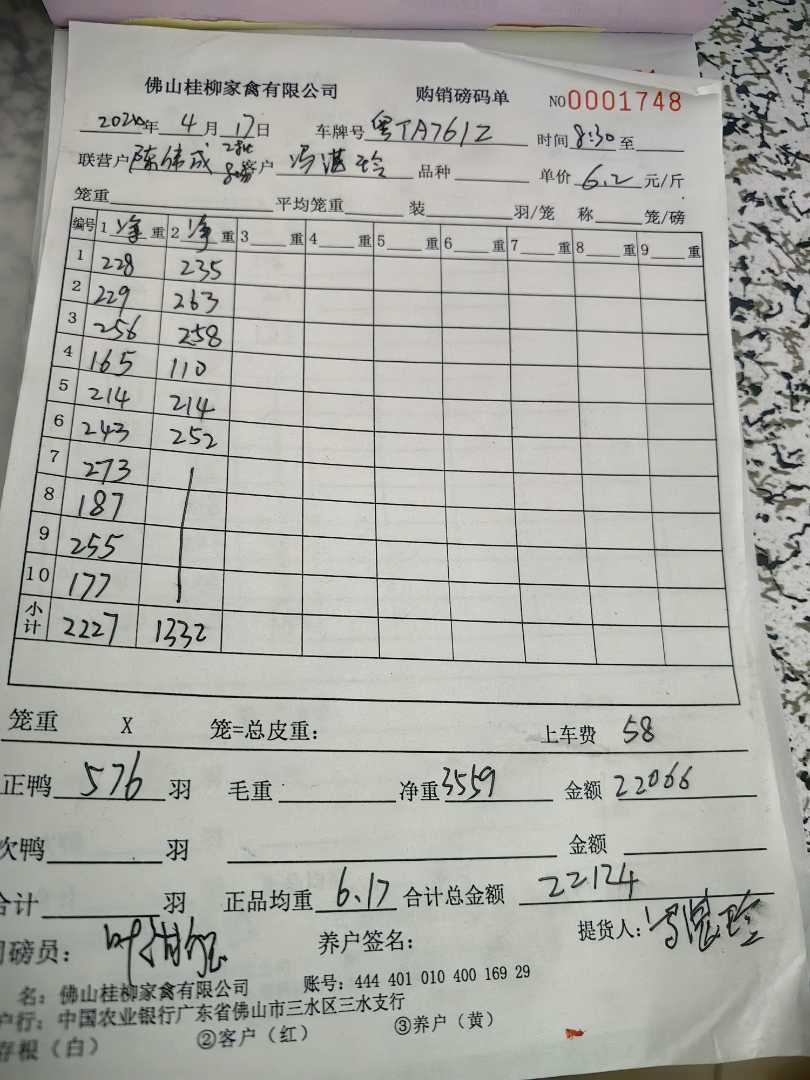 佛山桂柳家禽有限公司 购销磅码单 NO0001748
年 4 月 17 日 车牌号 粤TA7612 时间 8:30 至
联营户 陈伟成 客户 冯湛玲 品种 单价 6.2 元/斤
笼重 平均笼重 装 羽/笼 称 笼/磅
编号 1 净 重 2 净 重 3 重 4 重 5 重 6 重 7 重 8 重 9 重
1 228 235
2 229 263
3 256 258
4 165 110
5 214 214
6 243 252
7 273
8 187
9 255
10 177
小计 2227 1332
笼重 X 笼=总皮重: 上车费 58
正鸭 576 羽 毛重 净重 3559 金额 22066
次鸭 羽 金额
合计 羽 正品均重 6.17 合计总金额 22124
司磅员: 养户签名: 提货人: 冯湛玲
名: 佛山桂柳家禽有限公司 账号: 444 401 010 400 169 29
户行: 中国农业银行广东省佛山市三水区三水支行
存根（白） ②客户（红） ③养户（黄）